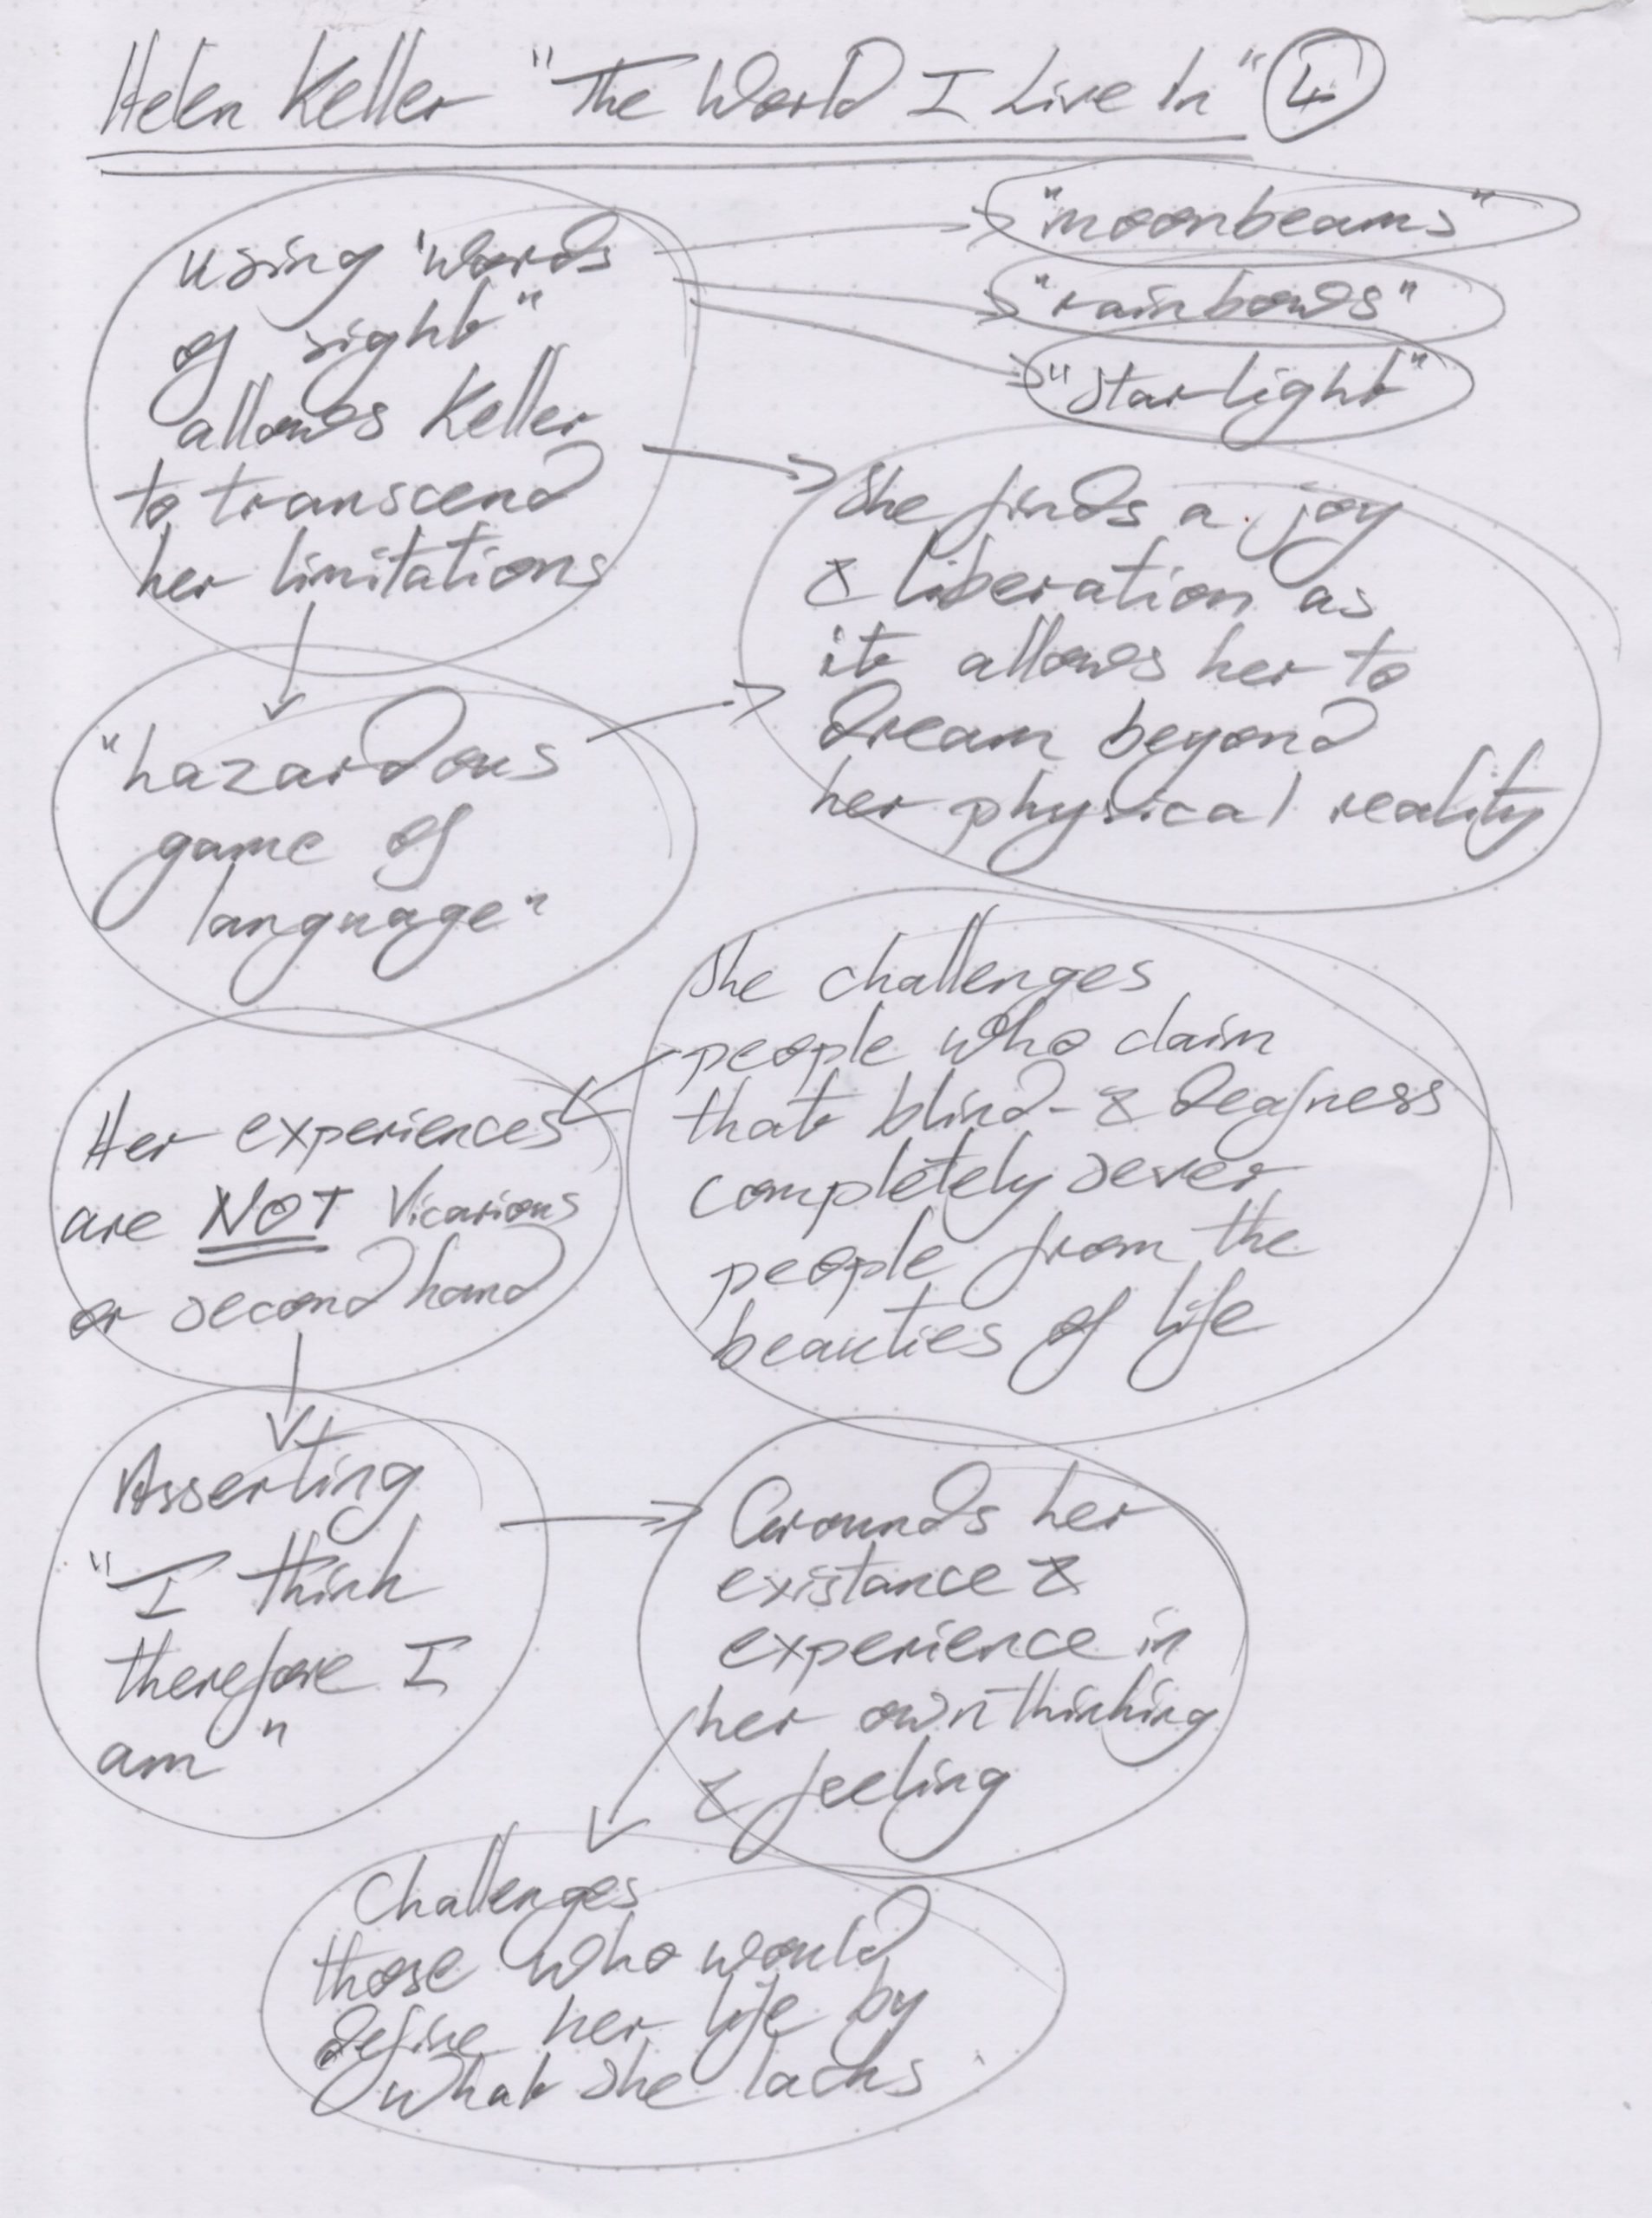 Helen Keller "The World I Live In" 4
using "words
of sight"
allows Keller
to transcend
her limitations
"moonbeams"
"rainbows"
"starlight"
She finds a joy
& liberation as
it allows her to
dream beyond
her physical reality
"hazardous
game of
language"
She challenges
people who claim
that blind- & deafness
completely sever
people from the
beauties of life
Her experiences
are NOT vicarious
or second hand
Asserting
"I think
therefore I
am"
Grounds her
existance &
experience in
her own thinking
& feeling
Challenges
those who would
define her life by
what she lacks